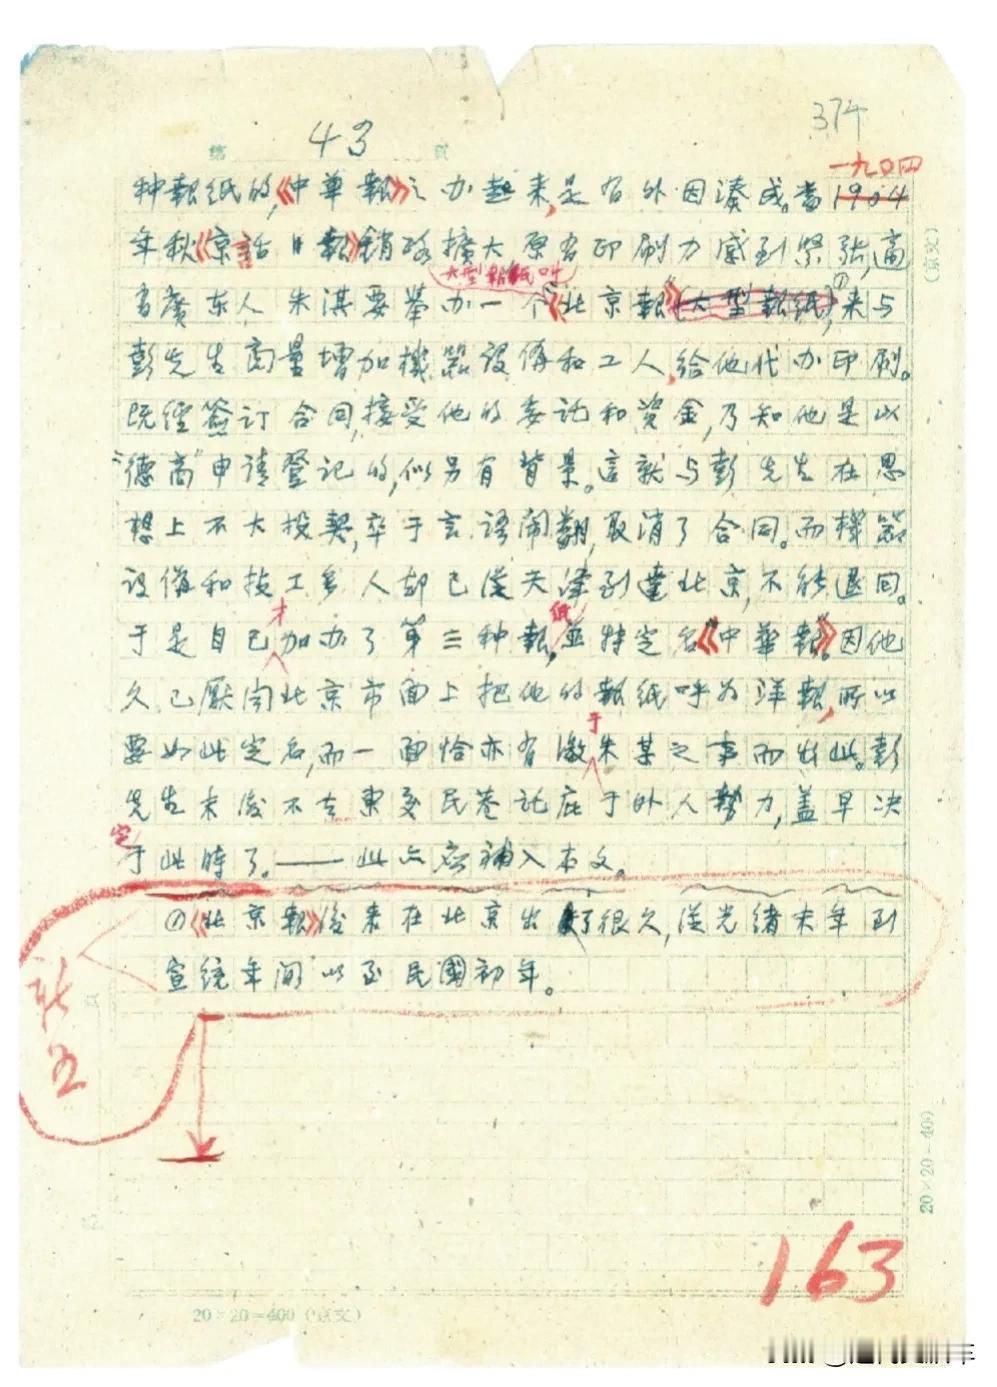 374
第 43 页
一九〇四
种報纸的,《中華報》之办起来,是有外因湊成。當1904
年秋《京話日報》銷路擴大原有印刷力感到緊张,適
大型報紙叫
有廣东人朱淇要举办一个《北京報》(大型報紙)①,来与
彭先生商量增加機器设俻和工人,给他代办印刷。
既经签订合同,接受他的委託和资金,乃知他是以
“德商”申请登记的,似另有背景。這就与彭先生在思
想上不大投契,卒于言语闹翻,取消了合同。而機器
设俻和技工多人却已從天津到達北京,不能退回。
才 紙
于是自己加办了第三种報,並特定名《中華報》。因他
久已厭闻北京市面上把他的報纸呼为洋報,所以
于
要如此定名,而一面恰亦有激朱某之事而出此。彭
先生末後不去東交民巷託庇于外人势力,盖早决
定
于此時了。——此点应補入本文。
①《北京報》後来在北京出了很久,從光緒末年到
宣统年间以至民國初年。
转五
163
20×20=400(京文)
(京文)
20×20=400